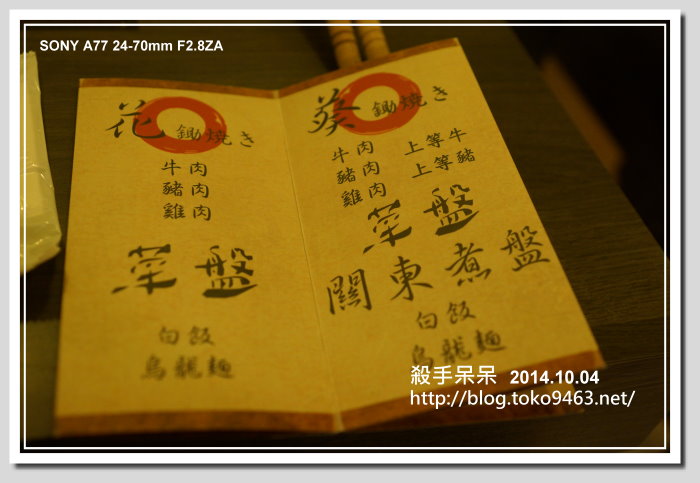 SONY A77 24-70mm F2.8ZA
花 鋤焼き
牛肉
豬肉
雞肉
菜盤
白飯
烏龍麵
葵 鋤焼き
牛肉 上等牛
豬肉 上等豬
雞肉
菜盤
關東煮盤
白飯
烏龍麵
殺手呆呆 2014.10.04
http://blog.toko9463.net/